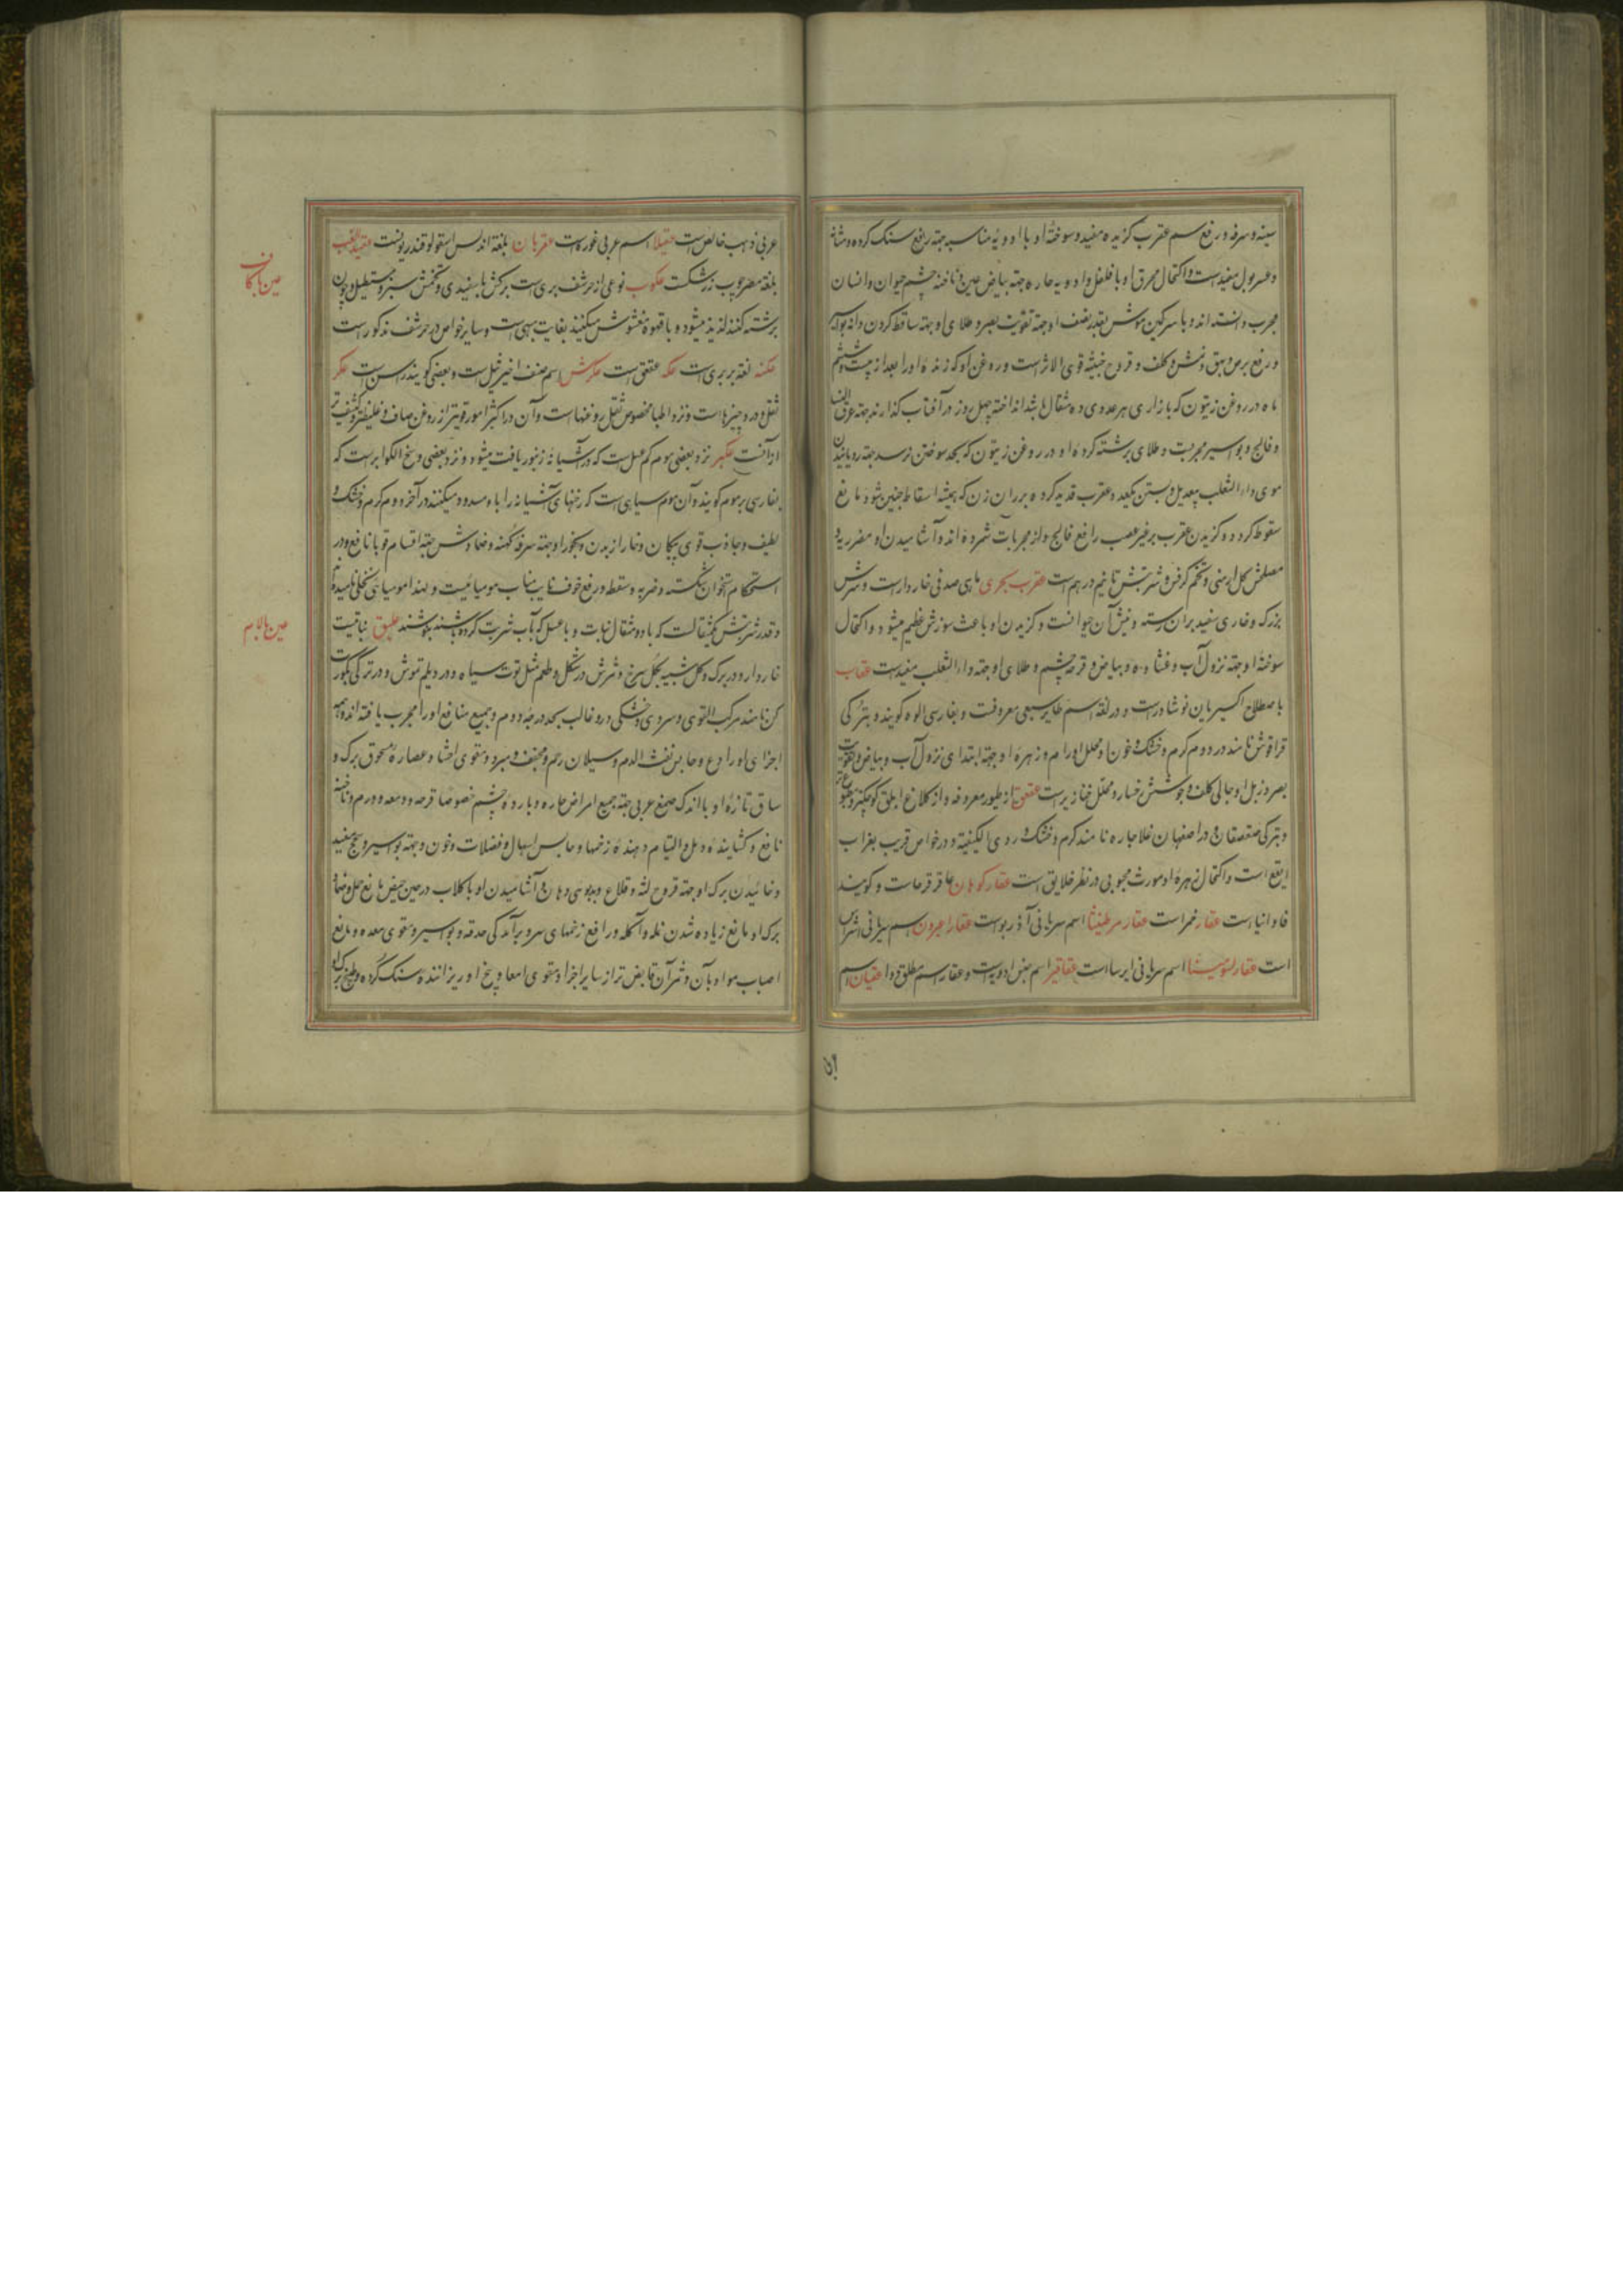 سینه و سرفه و رفع سم عقرب گزیده مفید و سوختهٔ او با ادویهٔ مناسبه جهة رفع سنک کرده و مثانه
و عسر بول مفید است و اکتحال محرق او با فلفل و ادویه حاره جهة بیاض عین و ناخنه چشم حیوان و انسان
مجرب دانسته اند و با سرکین موش بقدر نصف او جهة تقویت بصر و طلای او جهة ساقط کردن دانه بواسیر
و رفع برص و بهق و نمش و کلف و قروح خبیثه قوی الاثر است و روغن او که زندهٔ او را بعد از بیست و ششم
ماه در روغن زیتون که بازاری هر عددی ده مثقال باشد انداخته چهل روز در آفتاب کذارند جهة عرق النسا
و فالج و بواسیر مجربست و طلای برشته کردهٔ او در روغن زیتون که بحد سوختن نرسد جهة رویانیدن
موی داء الثعلب بیعدیل و بستن یکعدد عقرب قدید کرده بر ران زن که همیشه اسقاط جنین شود مانع
سقوط کردد و کزیدن عقرب بر غیر عصب رافع فالج و از مجربات شمرده اند و آشامیدن او مضر ریه و
مصلحش کل ارمنی و تخم کرفس و شربتش تا نیم درهم است عقرب بحری ماهی صدفی خاردار است و سرش
بزرک و خاری سفید بر آن رسته و نیش آن حیوانست و کزیدن او باعث سوزش عظیم میشود و اکتحال
سوختهٔ او جهة نزول آب و غشاوه و بیاض و قرحه چشم و طلای او جهة داء الثعلب مفید است عقاب
باصطلاح اکسیریان نوشادر است و در لغة اسم طایر سبعی معروفست و بفارسی الوه کویند و بترکی
قراقوش نامند در دوم کرم و خشک و خون او محلل اورام و زهرهٔ او جهة ابتدای نزول آب و بیاض و تقویت
بصر و زبل او جالی کلف و جوشش رخسار و محلل خنازیر است عقعق از طیور معروفه و از کلاغ ابلق کوچکتر
و بترکی صقصقان و در اصفهان غلاجاره نامند کرم و خشک و ردی الکیفیة و در خواص قریب بغراب
ابقع است و اکتحال زهرهٔ او مورث محبوبی در نظر خلایق است عقار کوهان عاقرقرحاست و کویند
فاوانیا است عقار خمر است عقار مرطینثا اسم سریانی آذربوست عقار اعبرون اسم سریانی اشراس
است عقار لسومیشا اسم سریانی ایرسا است عقاقیر اسم جنس ادویه است و عقار اسم مطلق دوا عقیان اسم
عربی ذهب خالص است عقیلا اسم عربی غوره است عقربان بلغة اندلس اسقولوقندریونست
بلغة مصر چوب زرشکست عکوب نوعی از حرشف بری است برکش با سفیدی و تخمش سبز و مستطیل و چون
برشته کنند لذیذ میشود و با قهوه مغشوش میکنند بغایت مبهی است و سایر خواص در حرشف مذکور است
عکنه لغة بربری است عکه عقعق است عکرش اسم صنف اخیر ثیل است و بعضی کویند رسن است عکر
ثقل و درد چیزها است و نزد اطبا مخصوص ثقل روغنها است و آن در اکثر امور قویتر از روغن صاف و غلیظتر و کثیفتر
از آنست عکبر نزد بعضی موم کم عسل است که در آشیانه زنبور یافت میشود و نزد بعضی وسخ الکوایر است که
بفارسی برموم کویند و آن موم سیاهی است که رخنهای آشیانه را باو مسدود میکنند در آخر دوم کرم و خشک و
لطیف و جاذب قوی پیکان و خار از بدن و بخور او جهة سرفه کهنه و ضمادش جهة اقسام قوبا نافع و در
استحکام استخوان شکسته و ضربه و سقطه و رفع خوف نایب مناب مومیائیست و لهذا مومیائی نحلی نامیده
و قدر شربتش یکمثقالست که با دو مثقال نبات و یا عسل که بآب شربت کرده باشند بنوشند علیق نباتیست
خاردار و در برک و کل شبیه بکل سرخ و ثمرش در شکل و طعم مثل توت سیاه و در دیلم تموش و در ترکی بکورت
کن نامند مرکب القوی و سردی و خشکی در و غالب بحد درجه دوم و جمیع منافع او را مجرب یافته اند و همه
اجزای او رادع و حابس نفث الدم و سیلان رحم و مجفف و مبرد و مقوی احشا و عصارهٔ مسحوق برک و
ساق تازهٔ او با اندک صمغ عربی جهة جمیع امراض حاره و باردهٔ چشم خصوصا قرحه و دمعه و ورم و ناخنه
نافع و کشایندهٔ دمل و التیام دهندهٔ زخمها و حابس اسهال و فضلات و خون و جهة بواسیر و سحج مفید
و خائیدن برک او جهة قروح لثه و قلاع و بدبوئی دهان و آشامیدن او با کلاب در حین حیض مانع حمل و ضماد
برک او مانع زیاده شدن نمله و آکله و رافع زخمهای سر و برآمدکی حدقه و بواسیر و مقوی معده و مانع
انصباب مواد بآن و ثمر آن قابض تر از سایر اجزا و مقوی امعا و بیخ او ریزانندهٔ سنک کرده و طبیخ برک او
عین با کاف
عین با لام